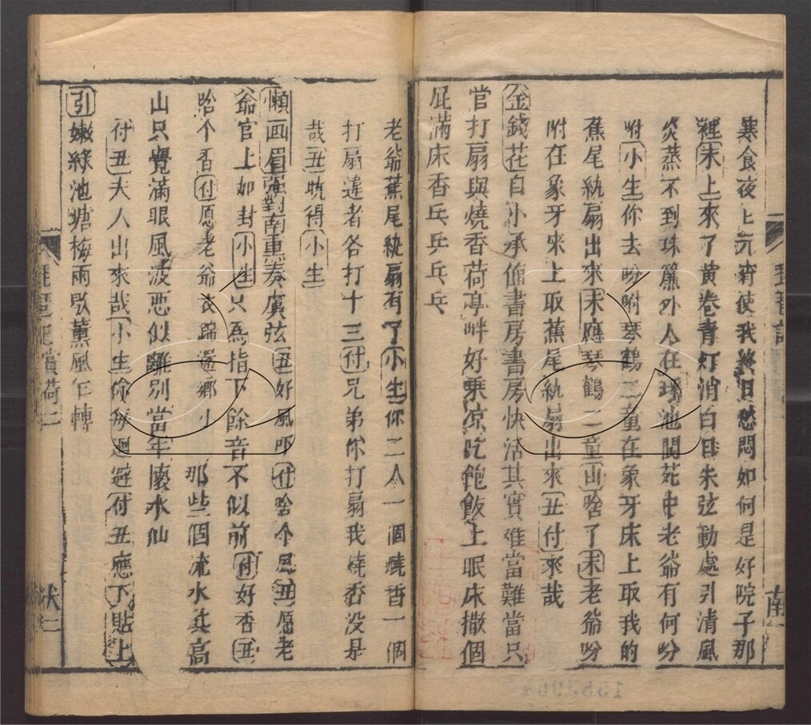 寒食夜上元宵使我終日愁悶如何是好院子那
裡末上來了黄卷青灯消白日朱弦動處引清風
炎蒸不到珠簾外人在瑶池閬苑中老爺有何吩
咐小生你去吩咐琴鶴二童在象牙床上取我的
蕉尾紈扇出來末應琴鶴二童山啥了末老爺吩
咐在象牙床上取蕉尾紈扇出來丑付來哉
金錢花白小承値書房書房快活其實难當難當只
官打扇與燒香荷亭畔好乗凉吃飽飯上眠床撒個
屁滿床香乓乒乓乓
老爺蕉尾紈扇有了小生你二人一個燒香一個
打扇違者各打十三付兄弟你打扇我燒香没是
哉丑晩得小生
懶画眉强對南熏奏虞弦丑好風吓付啥个風丑愿老
爺官上加封小生只為指下餘音不似前付好香丑
啥个香付愿老爺衣錦還鄉小那些個流水共高
山只覺滿眼風波惡似離別當年懷水仙
付丑夫人出來哉小生你每廻避付丑應下貼上
引嫩綠池塘梅雨歇薰風乍轉
琵琶記
南
琵琶記賞荷二